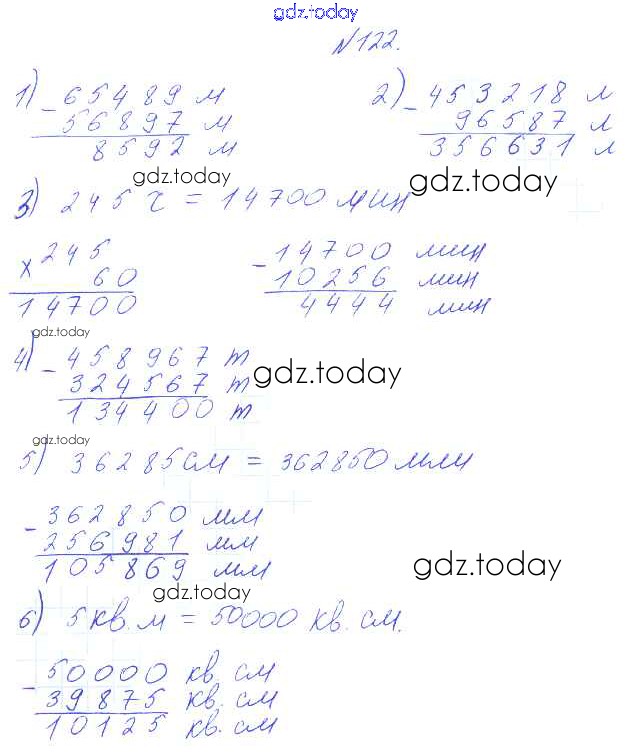 gdz.today
№122.
1) - 65489 м
56897 м
8592 м
2) - 453218 л
96587 л
356631 л
gdz.today
gdz.today
3) 245 ч = 14700 мин
× 245
60
14700
- 14700 мин
10256 мин
4444 мин
gdz.today
4) - 458967 т
324567 т
134400 т
gdz.today
gdz.today
5) 36285 см = 362850 мм
- 362850 мм
256981 мм
105869 мм
gdz.today
gdz.today
6) 5 кв. м = 50000 кв. см.
- 50000 кв. см
39875 кв. см
10125 кв. см